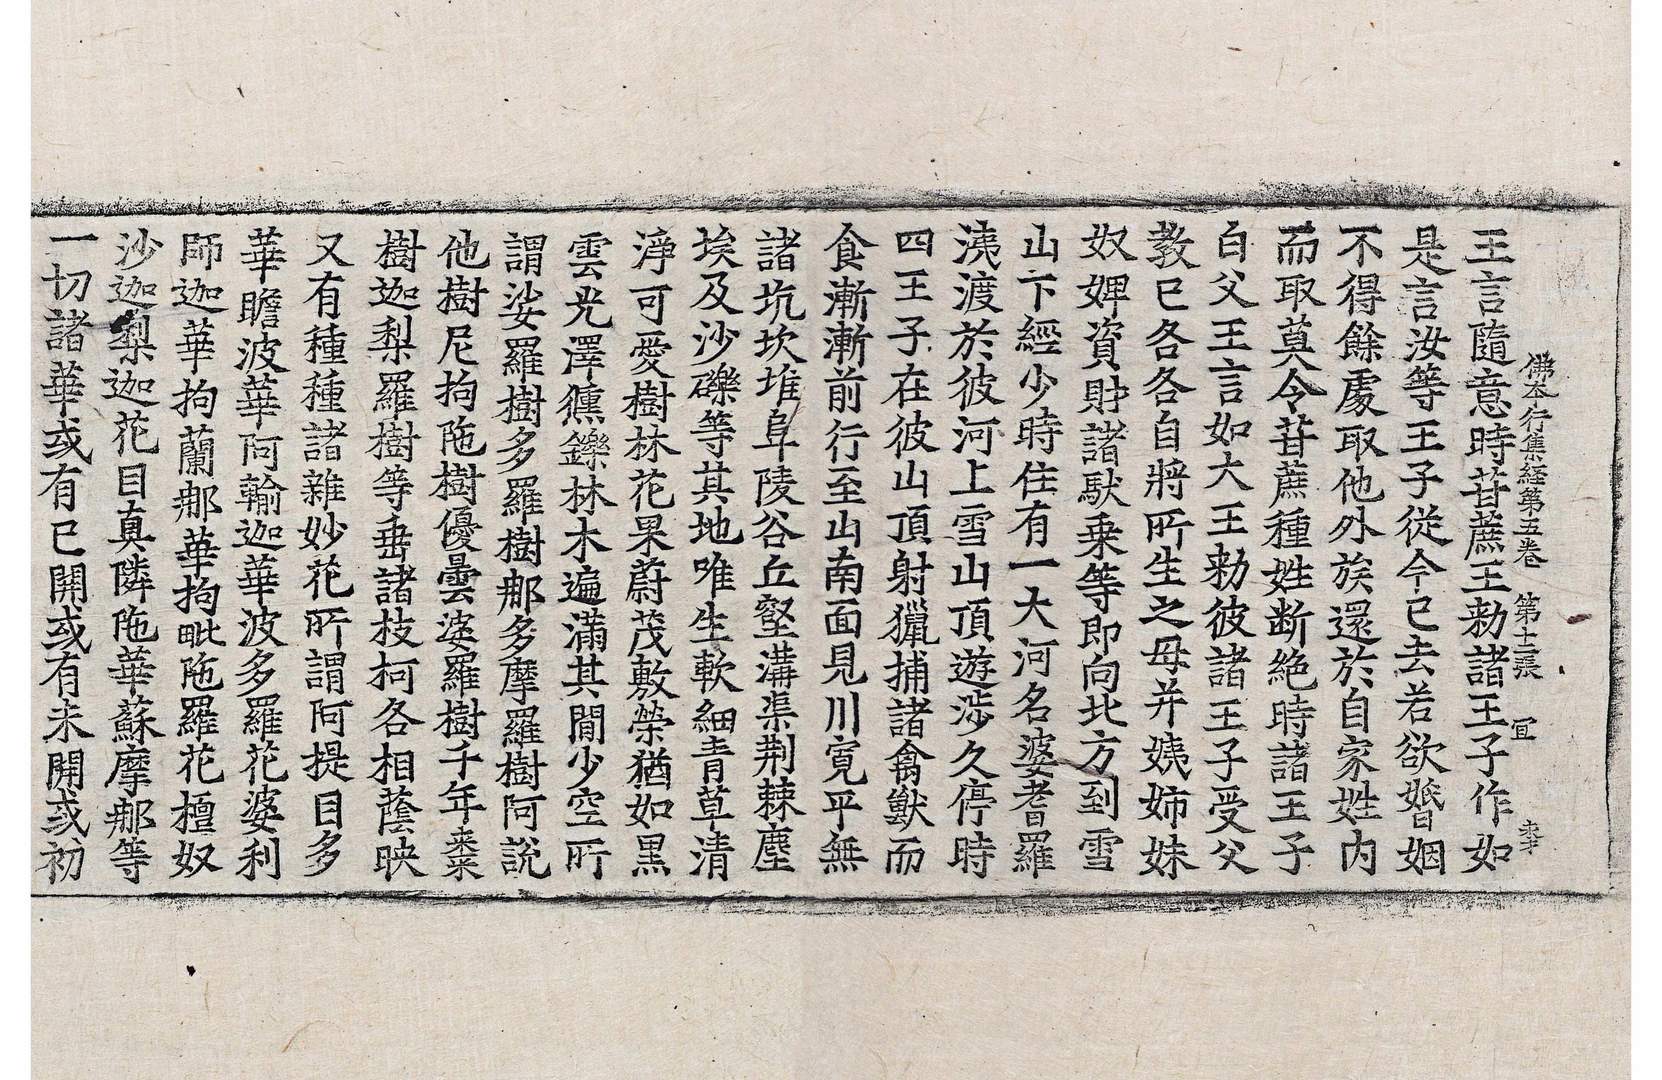 佛本行集經第五卷 第十二張 冝
王言隨意時苷蔗王勑諸王子作如
是言汝等王子從今已去若欲婚姻
不得餘處取他外族還於自家姓內
而取莫令苷蔗種姓断絶時諸王子
白父王言如大王勑彼諸王子受父
教已各各自將所生之母并姨姉妹
奴婢資財諸馱乗等即向北方到雪
山下經少時住有一大河名婆耆羅
洟渡於彼河上雪山頂遊涉久停時
四王子在彼山頂射獵捕諸禽獸而
食漸漸前行至山南面見川寛平無
諸坑坎堆阜陵谷丘壑溝渠荆棘塵
埃及沙礫等其地唯生軟細青草清
淨可愛樹林花果蔚茂敷榮猶如黒
雲光澤㷱鑠林木遍滿其間少空所
謂娑羅樹多羅樹那多摩羅樹阿說
他樹尼拘陁樹優曇婆羅樹千年棗
樹迦梨羅樹等垂諸枝柯各相蔭映
又有種種諸雜妙花所謂阿提目多
華瞻波華阿輸迦華波多羅花婆利
師迦華拘蘭那華拘毗陁羅花檀奴
沙迦梨迦花目真隣陁華蘇摩那等
一切諸華或有已開或有未開或初